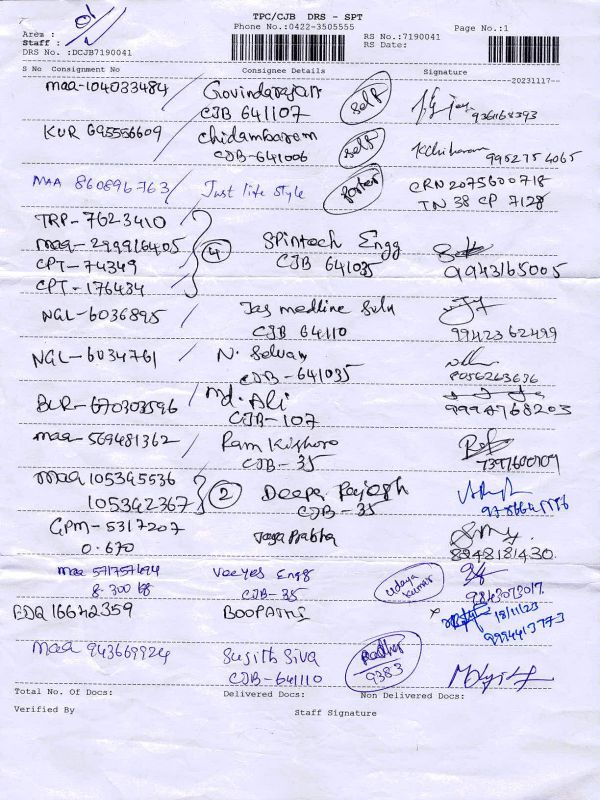 TPC/CJB DRS - SPT
Phone No.:0422-3505555
Page No.:1
Area :
Staff :
DRS No. :DCJB7190041
RS No.:7190041
RS Date:
S No Consignment No Consignee Details Signature
20231117
maa-104033484 Govindarajan self
CJB 641107
KUR 695556609 Chidambaram self
CJB-641006 9952754065
MAA 860896763 Just life style CRN2075600718
TN 38 CP 7128
TRP-7623410
maa-299916405 4 Spintech Engg
CPT-74349 CJB 641035 9943165005
CPT-176434
NGL-6036895 Jas medline Soln
CJB 64110 9942362499
NGL-6034761 N. Selvan
CJB-641035 8056263636
BLR-670303596 Md. Ali
CJB-107 9994768203
maa-569481362 Ram Kishore
CJB-35
maa 105345536 2 Deepa Rajesh
105342367 CJB-35
GPM-5317207 Jaga Prabha
0.670 8248181430
maa 571757694 Veeyes Engg Udaya
8.300 kg CJB-35 Kumar 9843073017
EDQ 16642359 BOOPATHI 18/11/23
9994413773
maa 943669924 Sujith Siva
CJB-641110 9383
Total No. Of Docs: Delivered Docs: Non Delivered Docs:
Verified By Staff Signature